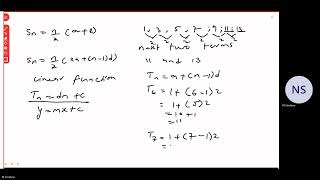 Sn = n/2 (a+l)
Sn = n/2 (2a+(n-1)d)
Linear function
Tn = dn + c
y = mx + c
1, 3, 5, 7, 9, 11, 13
2 2 2 2 2 2
next two terms
11 and 13
Tn = a+(n-1)d
T6 = 1+(6-1)2
= 1+(5)2
= 10+1
= 11
T7 = 1+(7-1)2
=
NS